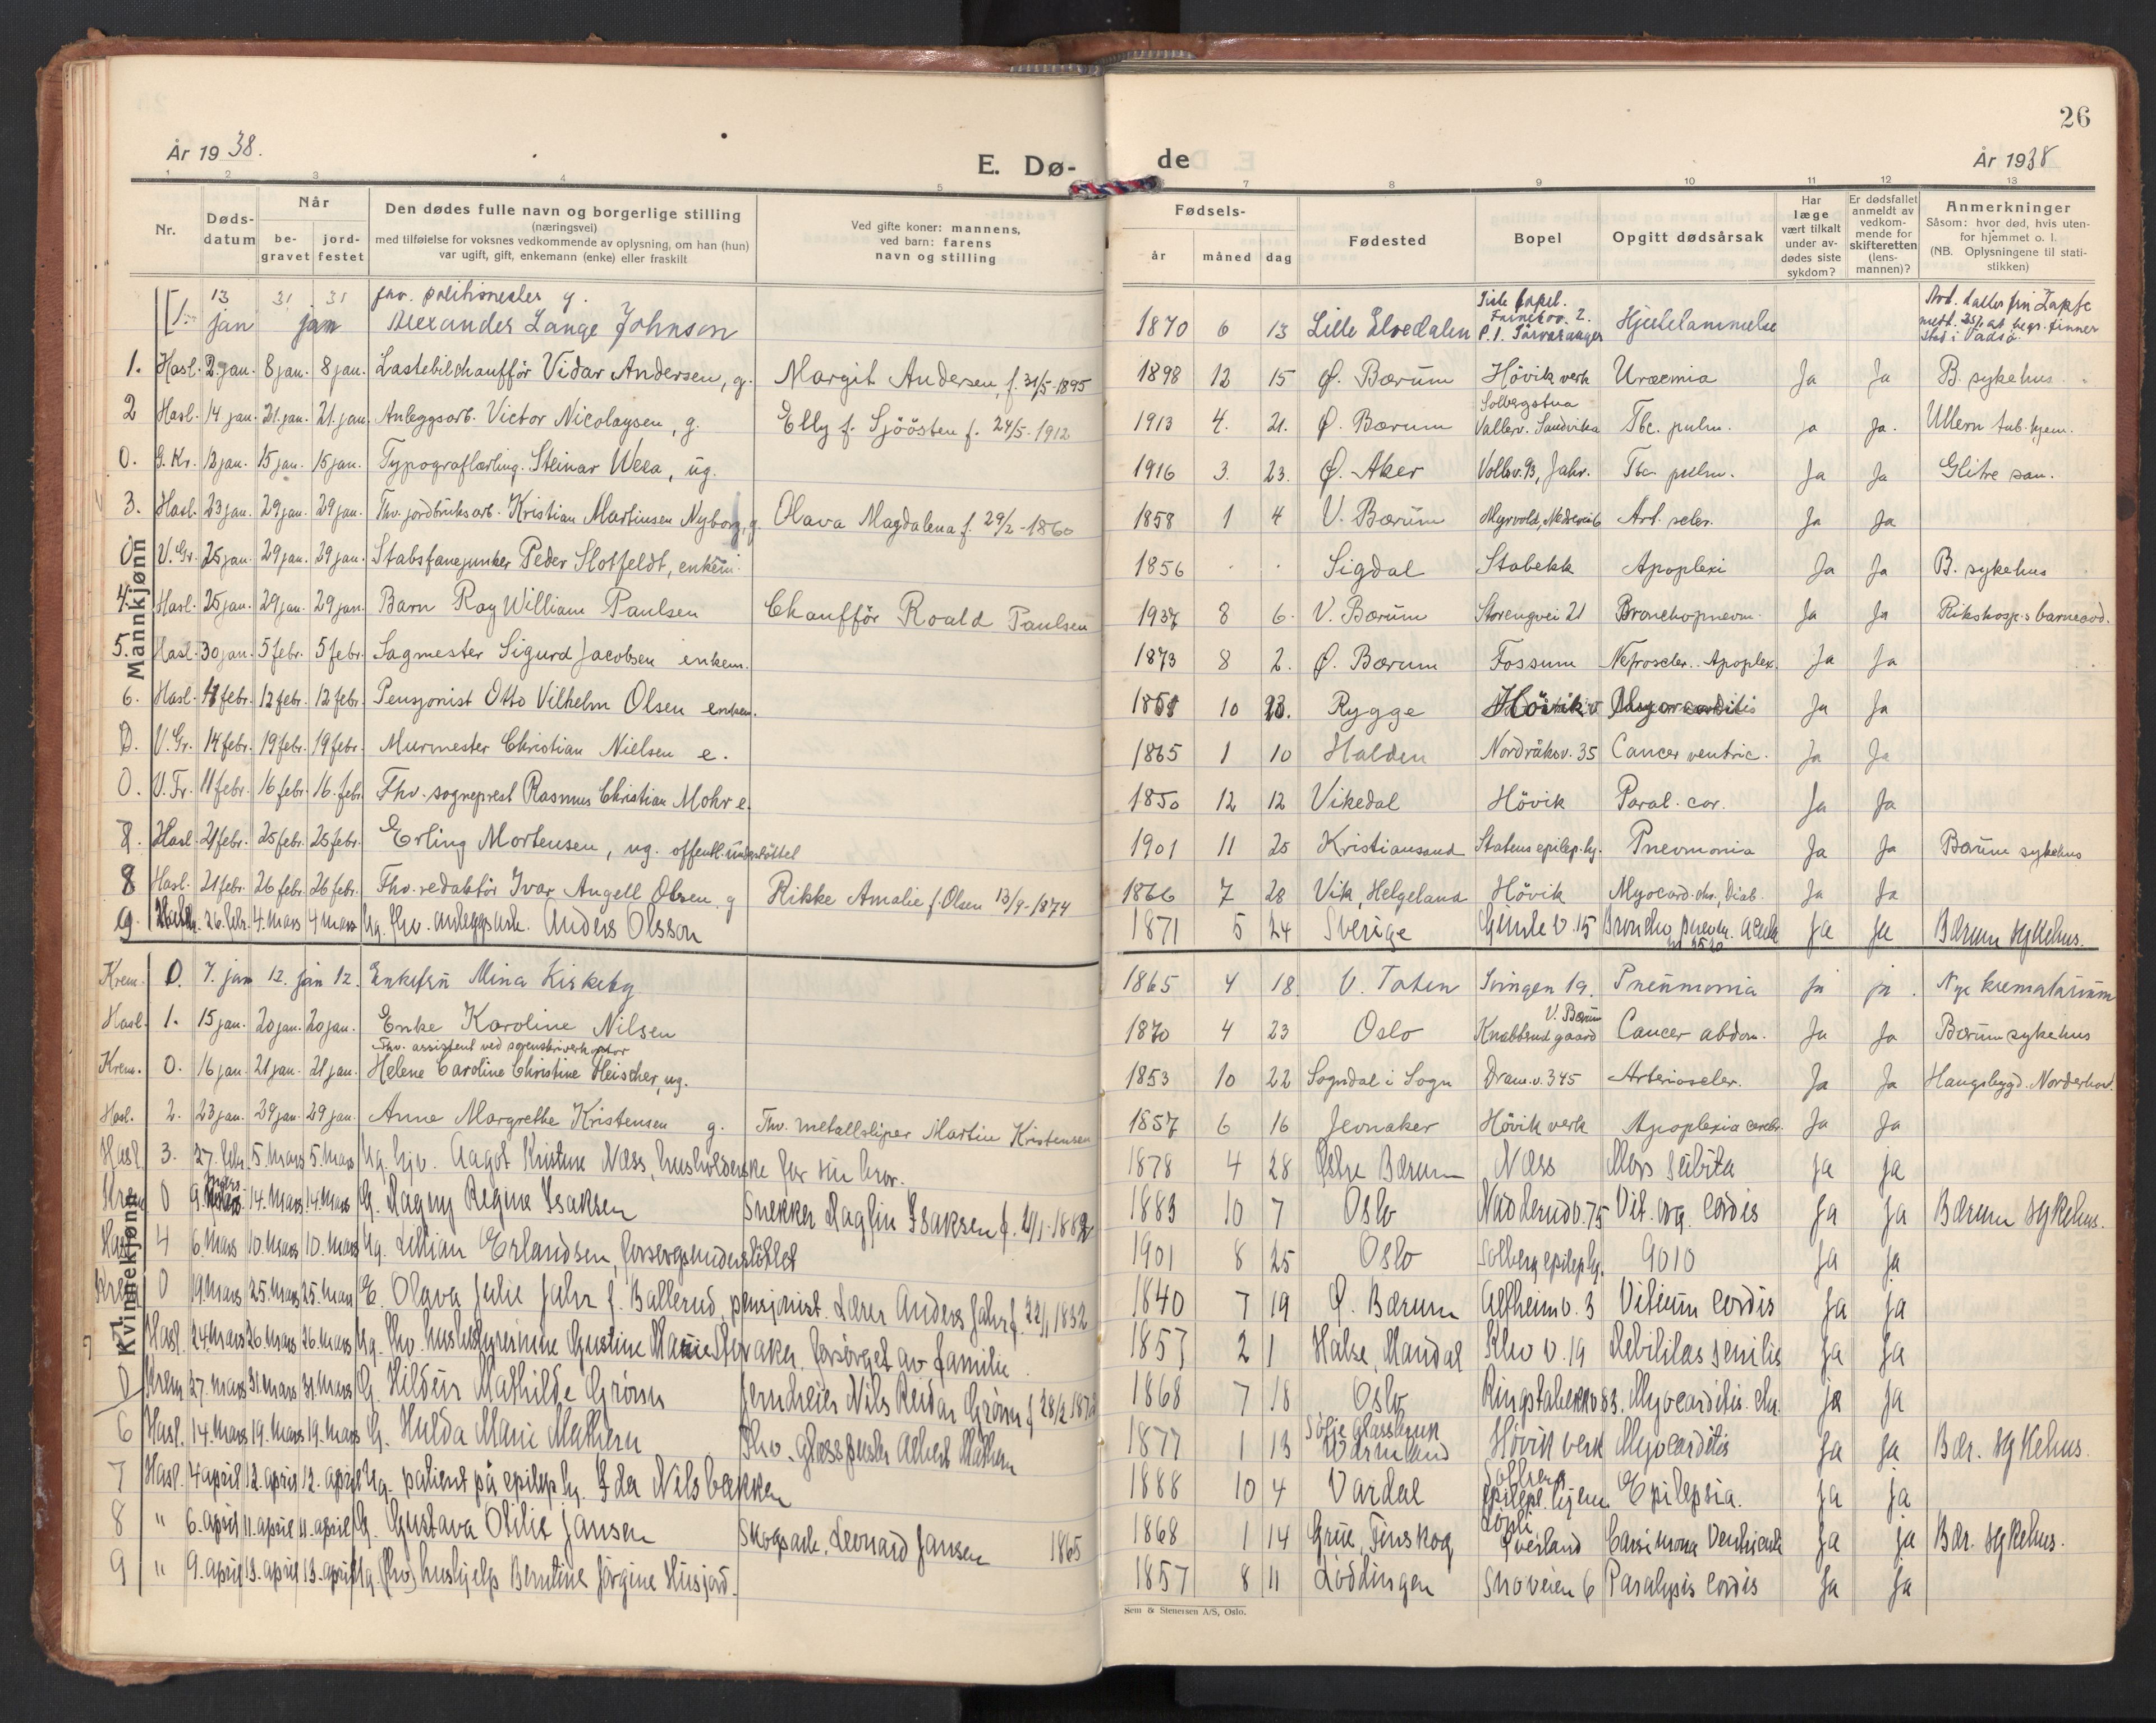 26
År 1938.
E. Dø-
de
År 1938
1 2 3 4 5
7 8 9 10 11 12 13
Nr.
Døds-
datum
Når
be-
gravet
jord-
festet
Den dødes fulle navn og borgerlige stilling
(næringsvei)
med tilføielse for voksnes vedkommende av oplysning, om han (hun)
var ugift, gift, enkemann (enke) eller fraskilt
Ved gifte koner: mannens,
ved barn: farens
navn og stilling
Fødsels-
år måned dag
Fødested
Bopel
Opgitt dødsårsak
Har
læge
vært tilkalt
under av-
dødes siste
sykdom?
Er dødsfallet
anmeldt av
vedkom-
mende for
skifteretten
(lens-
mannen)?
Anmerkninger
Såsom: hvor død, hvis uten-
for hjemmet o. l.
(NB. Oplysningene til stati-
stikken)
Mannkjønn
13 jan 31 31 jan fhv. politimester g. Alexander Lange Johnson 1870 6 13 Lille Elvedalen Siste bopel. P.t. Hjertelammelse
1. Hasl. 2. jan. 8 jan. 8 jan. Lastebilchaufför Vidar Andersen, g. Margit Andersen, f. 31/5-1895 1898 12 15 Ø. Bærum Hövik verk Uraemia Ja Ja B. sykehus
2 Hasl. 14 jan. 21. jan. 21. jan. Anleggsarb. Victor Nicolaysen, g. Elly f. Sjöösten f. 24/5-1912 1913 4. 21. Ø. Bærum Solbergstua Vallerv. Sandvika Tbc. pulm. ja Ja. Ullern tub. hjem.
0. G. Kr. 12 jan. 15 jan. 15 jan. Typograflærling. Steinar Weea, ug. 1916 3. 23. Ø. Aker Vollsv. 93, Jahr. Tbc pulm. Ja Ja Glitre san.
3. Hasl. 23 jan. 29 jan. 29 jan. Fhv. jordbruksarb. Kristian Martinsen Nyborg, g. Olava Magdalena f. 29/2-1860 1858 1 4 V. Bærum Myrvold, Art. scler. Ja Ja
0 V. Gr. 25 jan. 29 jan. 29 jan. Stabsfanejunker Peder Slotfeldt, enkem. 1856 Sigdal Stabekk Apoplexi Ja Ja B. sykehus
4. Hasl. 25 jan. 29 jan. 29 jan. Barn Roy William Paulsen Chaufför Roald Paulsen 1937 8 6. V. Bærum Storengvei 21 Bronchopneum. Ja Ja Rikshosp.s barneavd.
5. Hasl. 30 jan. 5 febr. 5 febr. Sagmester Sigurd Jacobsen enkem. 1873 8 2. Ø. Bærum Fossum Nefroscler. Apoplex. Ja Ja
6. Hasl. febr. 12 febr. 12 febr. Pensjonist Otto Vilhelm Olsen enkem. 10 Rygge Hövik v Myocarditis Ja Ja
0. V. Gr. 14 febr. 19 febr. 19 febr. Murmester Christian Nielsen e. 1865 1 10 Halden Nordråksv. 35 Cancer ventric. Ja Ja
0. V. Fr. 11 febr. 16 febr. 16. febr. Fhv. sogneprest Rasmus Christian Mohr e. 1850 12 12 Vikedal Hövik Paral. cor. Ja Ja
Hasl. 21 febr. 25 febr. 25 febr. Erling Mortensen, ug. offentl. understöttet 1901 11 25 Kristiansand Statens epilep. hj. Pneumonia Ja Ja Bærum sykehus
8 Hasl. 21 febr. 26 febr. 26 febr. Fhv. redaktör Ivar Angell Olsen, g Rikke Amalie f. Olsen 13/9-1874 1866 7 28 Vik Helgeland Hövik Myocard. chr., Diab. Ja Ja
9. Hasl. 26. febr. 4. mars 4 mars Ug. fhv. anleggsarb. Anders Olsson 1871 5 24 Sverige v. 15 Broncho pneum. acuta Ja Ja Bærum sykehus.
Kvinnekjønn
Krem. 0. 7. jan 12. jan 12. Enkefru Mina Kirkeby 1865 4 18. V. Toten Svingen 19. Pneumonia ja ja Nye krematorium
Hasl. 1. 15 jan. 20 jan. 20 jan. Enke Karoline Nilsen 1870 4 23 Oslo Knabberud gaard V. Bærum Cancer abdom. Ja Ja Bærum sykehus
Krem. 0. 16 jan. 21 jan. 21 jan. Fhv. assistent ved sorenskriverkontor Helene Caroline Christine Fleischer, ug. 1853 10 22 Sogndal i Sogn Dram.v. 345 Arterioscler. Ja Ja Haugsbygd. Norderhov.
Hasl. 2. 23 jan. 29 jan. 29 jan. Anna Margrethe Kristensen g. Fhv. metallsliper Martin Kristensen 1857 6 16 Jevnaker Hövik verk Apoplexia cerebr. Ja Ja
Hasl 3. 27. febr. 5. mars 5. mars Ug. hjv. Aagot Kristine Næss, husholderske for sin bror. 1878 4 28 Østre Bærum Næss Mors subita ja ja
Krem 0 9. mars 14. mars 14. mars G. Ragny Regine Isaksen Snekker Dagfin Isaksen f. 21/1-1882 1883 10 7 Oslo Nadderudv. 75 Vit. org. cordis ja ja Bærum sykehus.
Hasl 4 6. mars 10. mars 10. mars Ug. Lillian Erlandsen, forsorgsunderstöttet 1901 8 25 Oslo Solberg epilep. hj. 9010 ja ja
Krem 0 19. mars 25. mars 25. mars E. Olava Julie Jahr f. Ballerud, pensjonist. Lærer Anders Jahr f. 22/11 1832 1840 7 19 Ø. Bærum Alfheimv. 3 Vitium cordis ja ja
5 Hasl. 24. mars 26. mars 26. mars Ug. fhv. husbestyrerinne Gustine Marie forsörget av familie. 1857 2 1 Halse, Mandal Klev v. 19 Debilitas senilis ja ja
0 Krem 27. mars 31. mars 31. mars G. Hildur Mathilde Grönn Jerndreier Nils Reidar Grönn f 28/2 1868 7 18 Oslo Ringstabekkv 83. Myocarditis chr. ja ja
6 Hasl. 14. mars 19. mars 19. mars G. Hulda Marie Mathern Fhv. glasspuster Albert Mathern 1877 1 13 Sofie Glassbruk Värmland Hövik verk Myocarditis ja ja Bær. sykehus.
7 Hasl. 4 april 12. april 12. april Ug. patient på epilep. hj. Ida Nilsbakken 1888 10 4 Vardal Solberg epilept. hjem Epilepsia. ja ja
8 " 6. april 11. april 11. april G. Gustava Otilie Jansen Skogsarb. Leonard Jansen 1865 1868 1 14 Grue, Finskog Carcinoma Ventriculi ja ja Bær. sykehus.
9 " 9. april 13. april 13. april Ug. (fhv) hushjelp Berntine Jörgine Husjord. 1857 8 11 Lödingen Snoveien 6 Paralysis cordis ja ja
Sem & Stenersen A/S, Oslo.